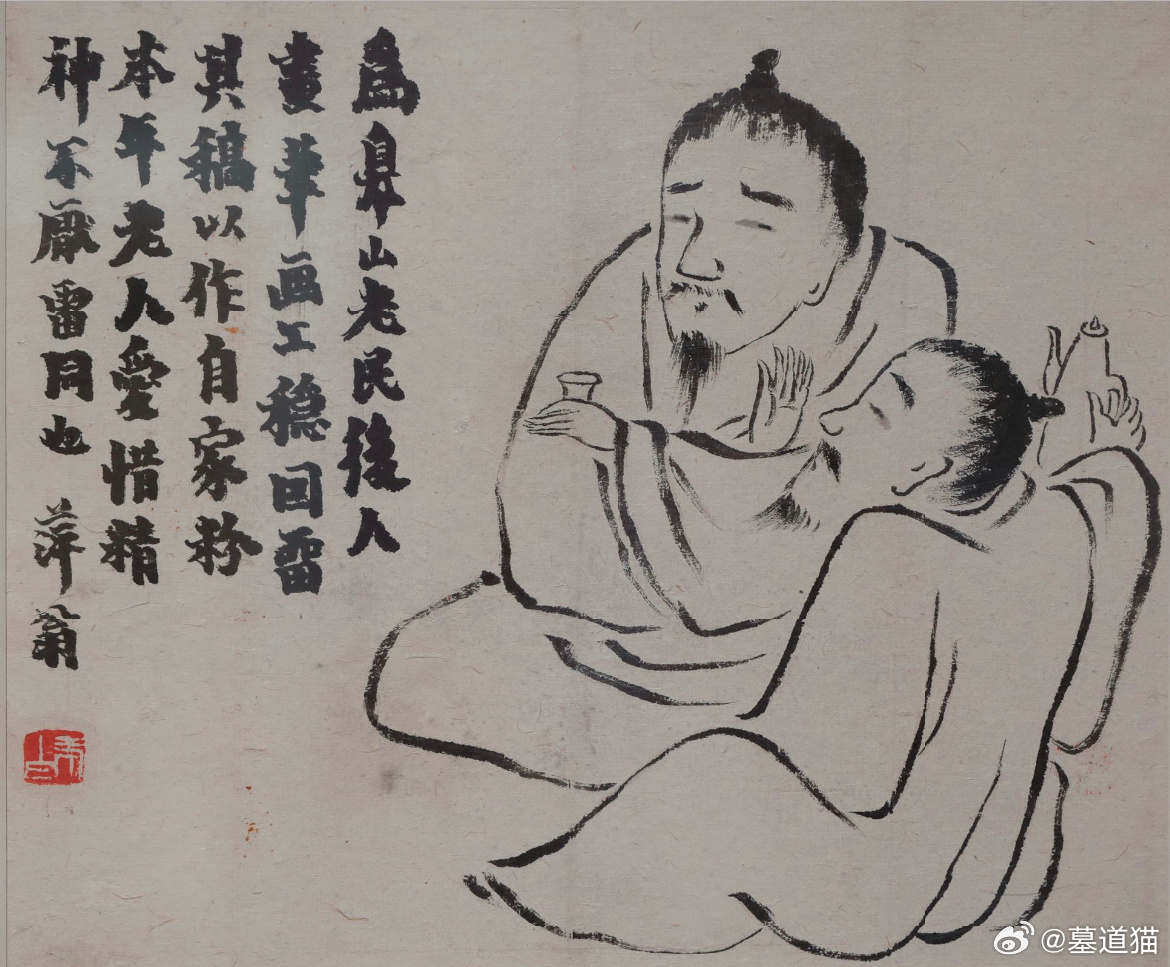 為鼻山老民後人
畫畢画工穩因畱
其稿以作自家粉
本年老人愛惜精
神不厭雷同也 萍翁
@墓道猫